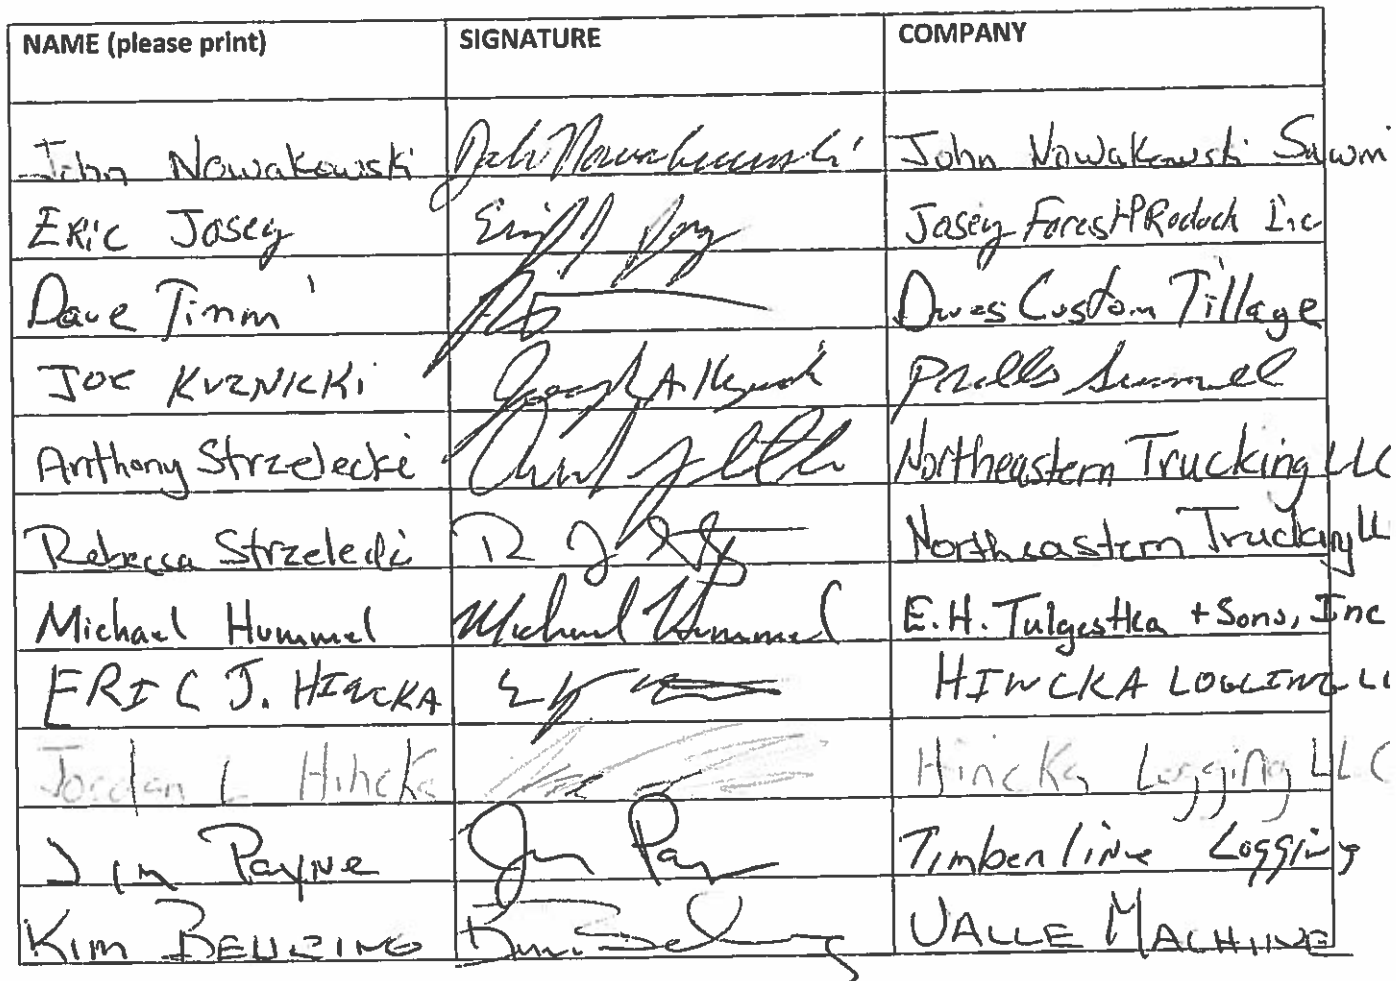 NAME (please print) SIGNATURE COMPANY
John Nowakowski John Nowakowski John Nowakowski Sawmi
ERIC Josey Josey Forest PRoduch Inc
Dave Timm Daves Custom Tillage
JOE KUZNICKI Joseph A Prells
Anthony Strzelecki Northeastern Trucking LLC
Rebecca Strzelecki R J Northeastern Trucking LL
Michael Hummel Michael Hummel E.H. Tulgestka + Sons, Inc
ERIC J. HINCKA HINCKA LOGGING LL
Jordan L Hincka Hincka Logging LLC
Jim Payne Jim Timberline Logging
Kim VALLE MACHINE